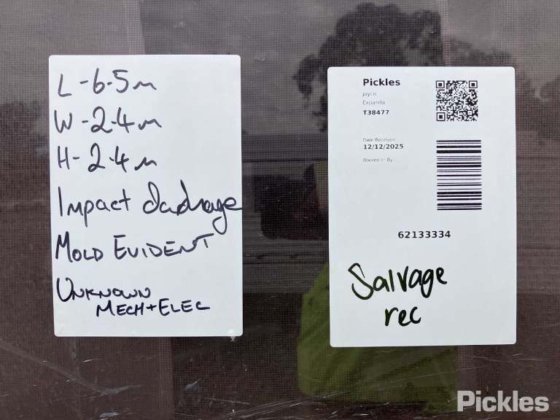 L-6.5m
W-2.4m
H-2.4m
Impact dadmage
MOLD EVIDENT
UNKNOWN
MECH+ELEC
Pickles
Jayco
T38477
Date Received:
12/12/2025
By:
62133334
Salvage
rec
Pickles